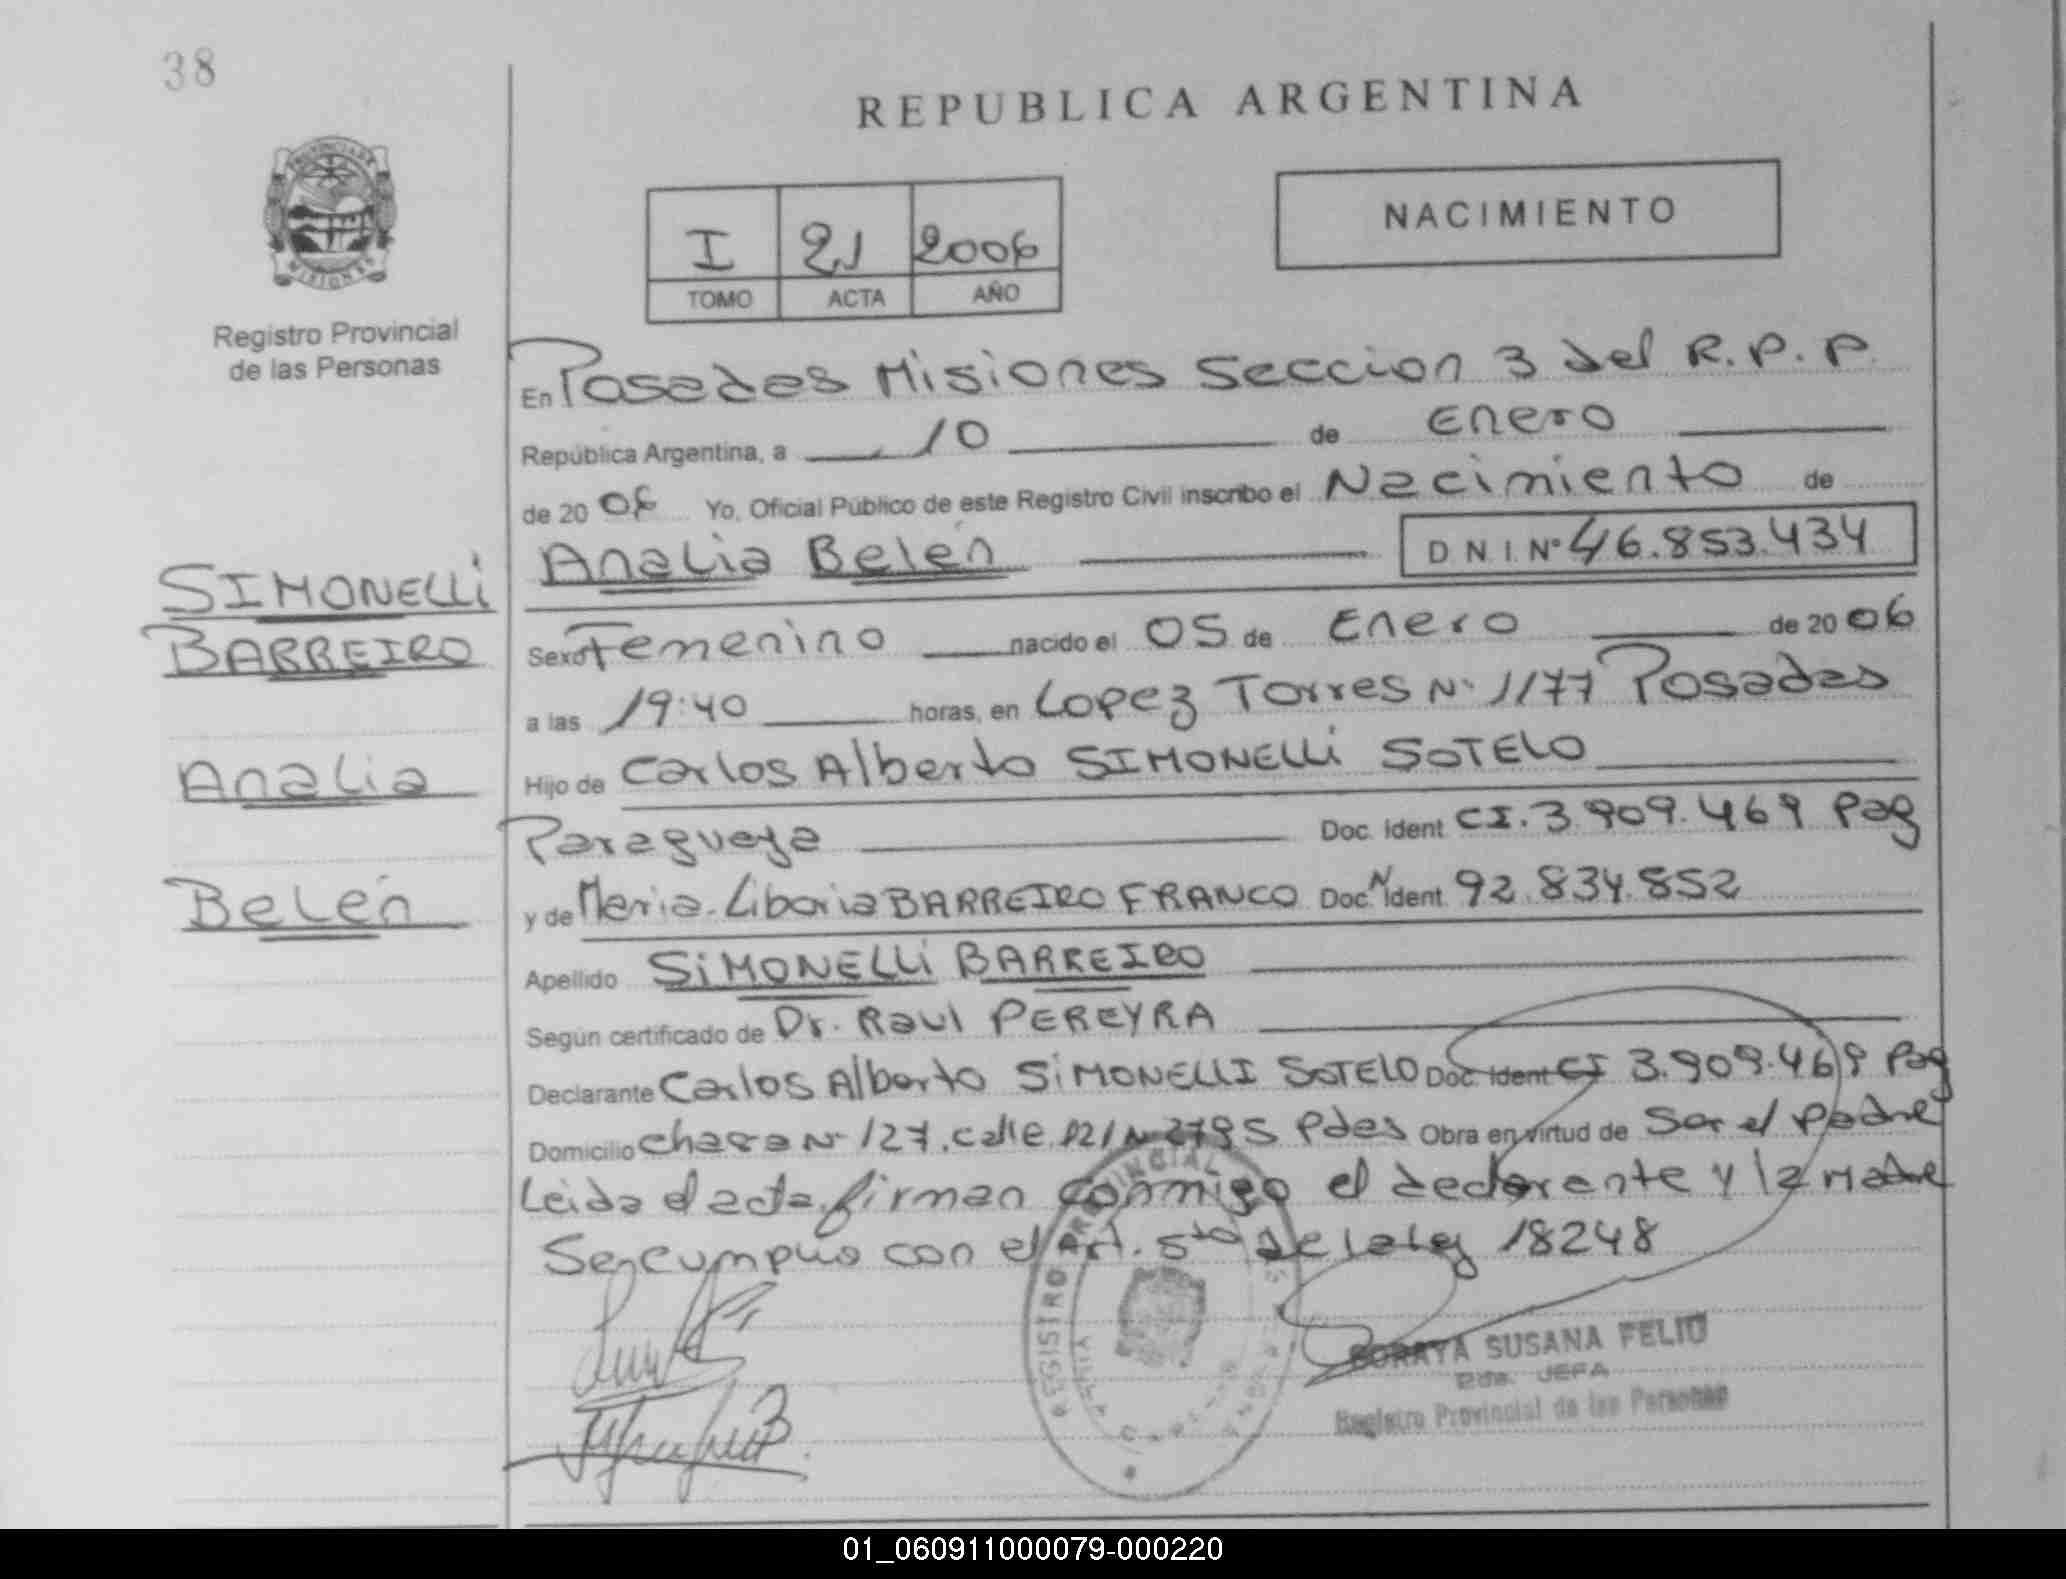 38
REPUBLICA ARGENTINA
PROVINCIA DE
MISIONES
Registro Provincial
de las Personas
I 21 2006
TOMO ACTA AÑO
NACIMIENTO
En Posadas Misiones Seccion 3 del R.P.P.
República Argentina, a 10 de Enero
de 20 06 Yo, Oficial Público de este Registro Civil inscribo el Nacimiento de
Analia Belén D N.I. Nº 46.853.434
SIMONELLi
BARREIRO
Analia
Belén
Sexo Femenino nacido el 05 de Enero de 20 06
a las 19:40 horas, en Lopez Torres Nº 1177 Posadas
Hijo de Carlos Alberto SIMONELLi SOTELO
Paraguaya Doc. ident CI. 3.909.469 Pag
y de Maria Liboria BARREIRO FRANCO Doc. N ident. 92.834.852
Apellido SiMONELLi BARREIRO
Según certificado de Dr. Raul PEREYRA
Declarante Carlos Alberto SiMONELLI SOTELO Doc. Ident CI 3.909.469 Pag
Domicilio Chacra Nº 127. calle Pdas Obra en virtud de Ser el Padre
Leida el acta firman conmigo el declarante y la Madre
Se cumplio con el Art. 5to de la ley 18248
REGISTRO PROVINCIAL
SORAYA SUSANA FELIU
JEFA
Registro Provincial de las Personas
01_060911000079-000220